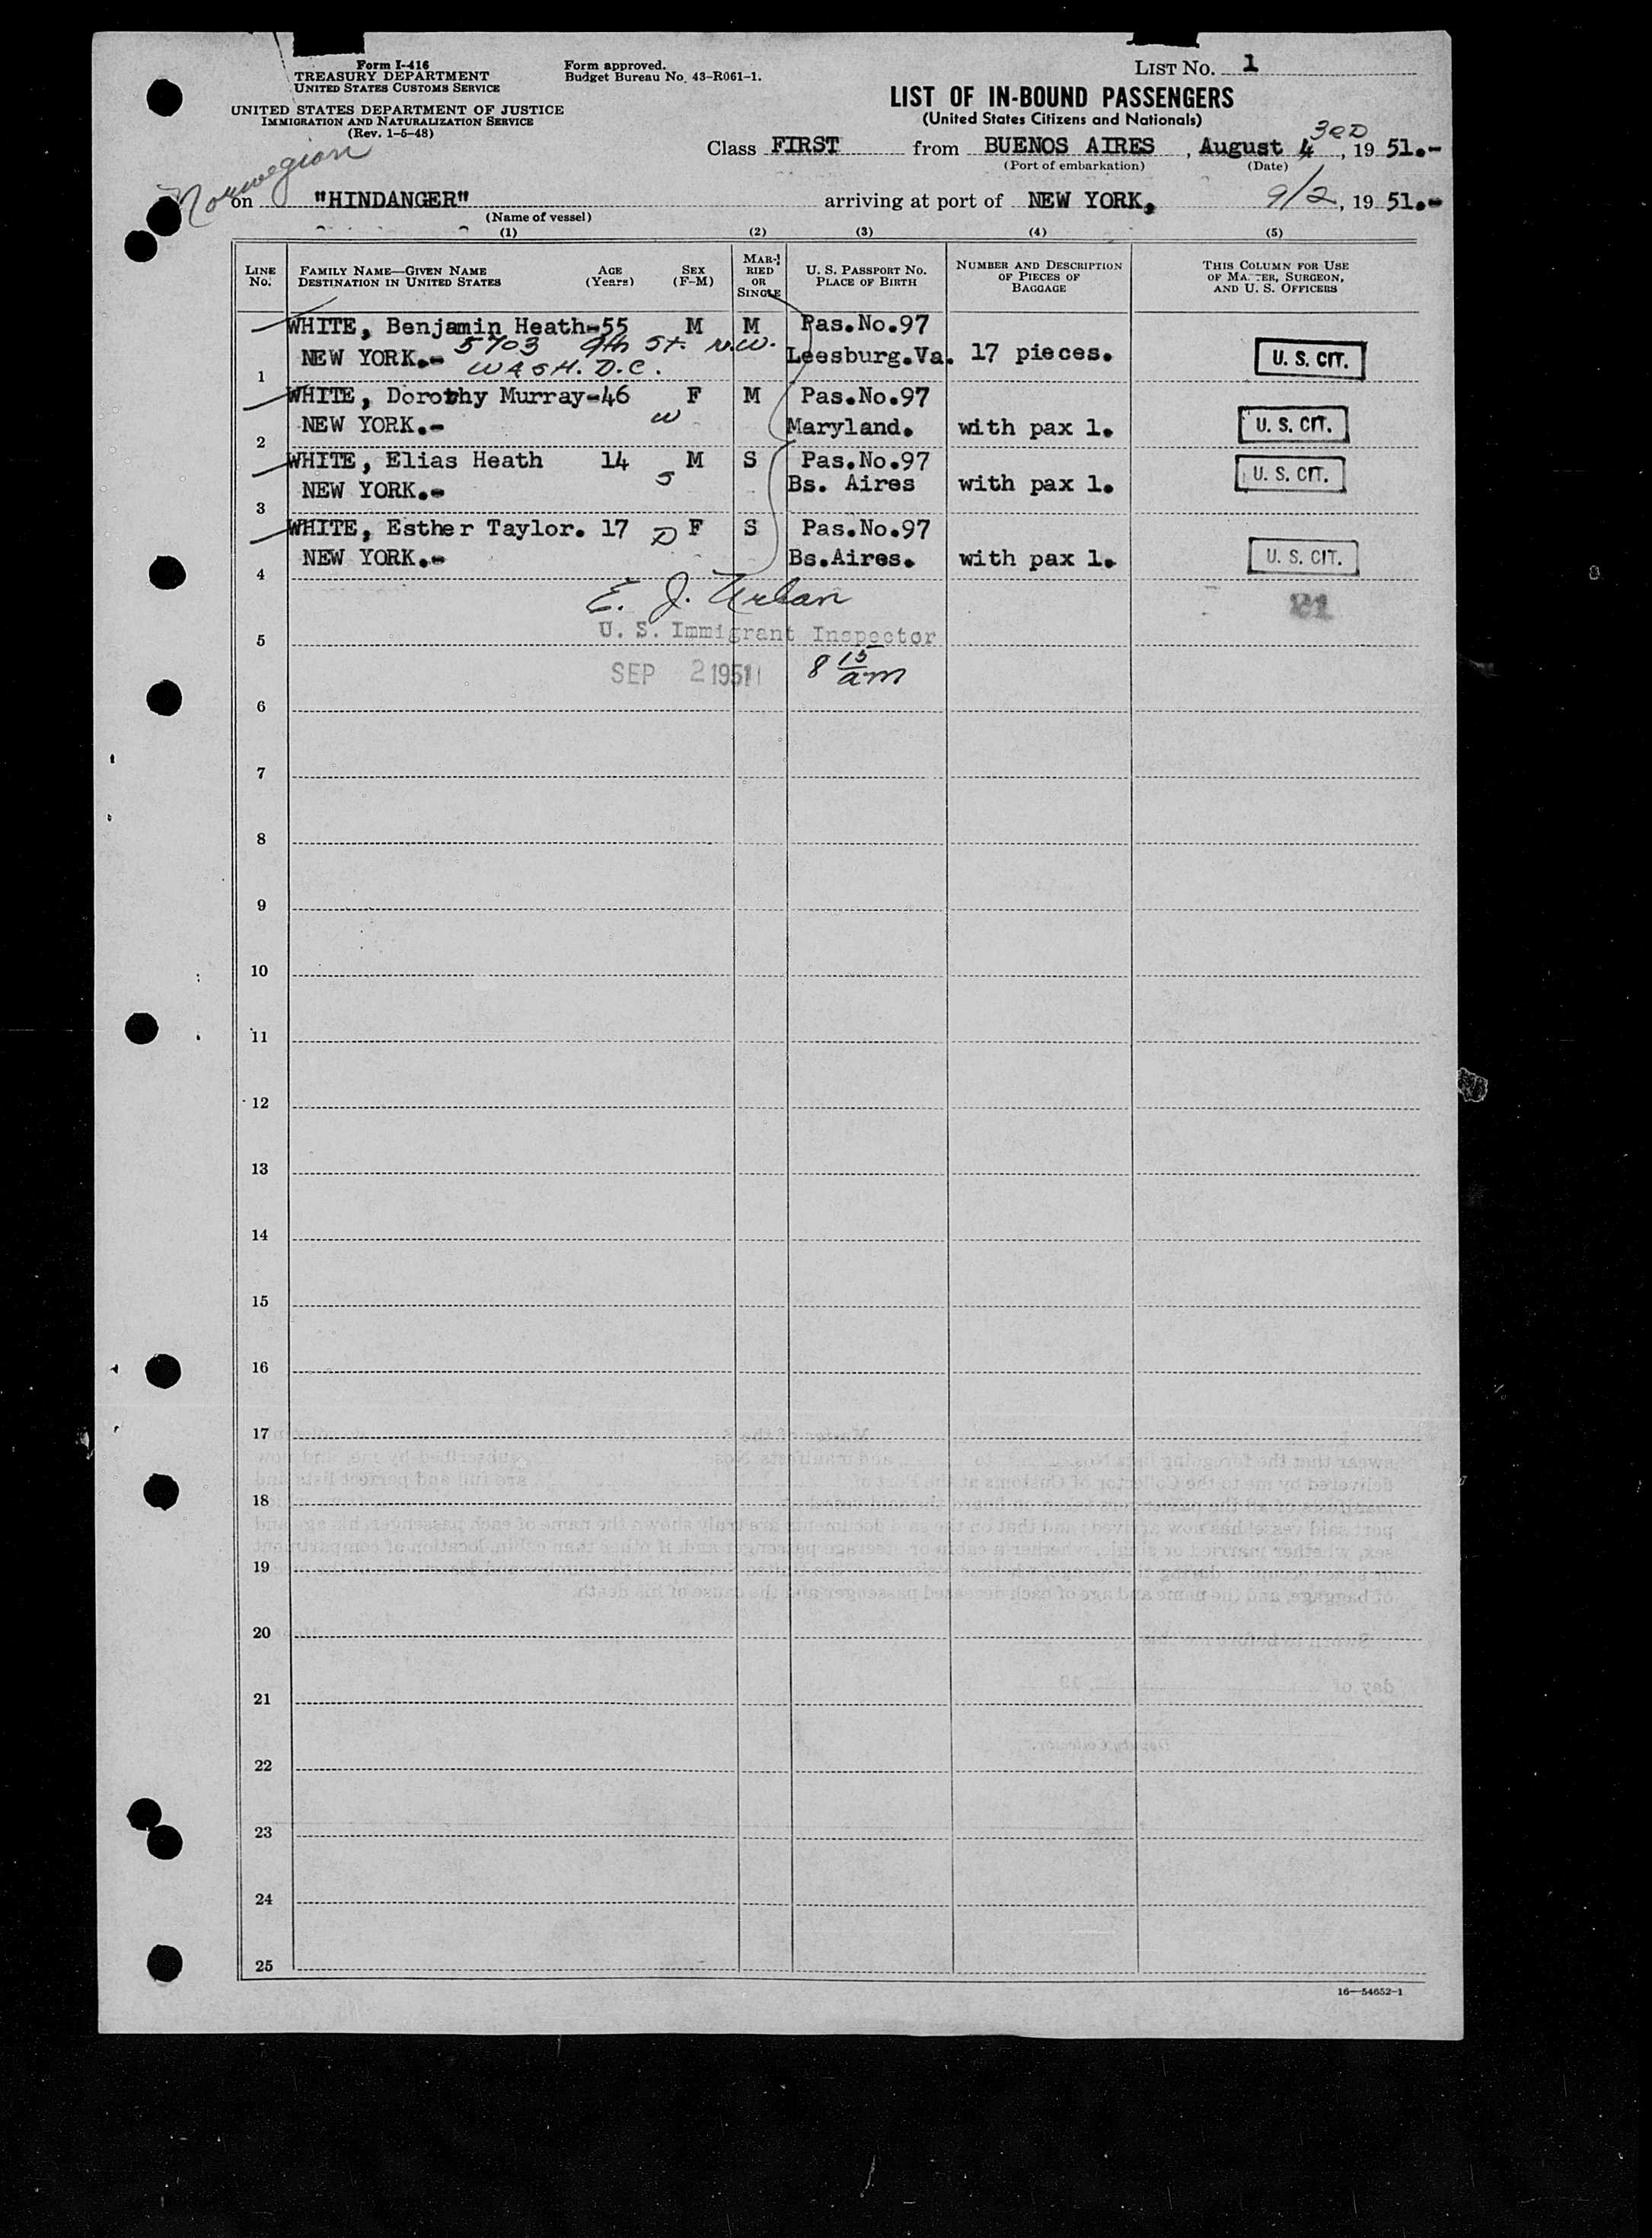 Form I-416
TREASURY DEPARTMENT
UNITED STATES CUSTOMS SERVICE
UNITED STATES DEPARTMENT OF JUSTICE
IMMIGRATION AND NATURALIZATION SERVICE
(Rev. 1-5-48)
Form approved.
Budget Bureau No. 43-R061-1.
LIST NO. 1
LIST OF IN-BOUND PASSENGERS
(United States Citizens and Nationals)
3RD
Class FIRST from BUENOS AIRES, August 4, 1951.-
(Port of embarkation) (Date)
Norwegian
on "HINDANGER" arriving at port of NEW YORK, 9/2, 1951.-
(Name of vessel)
(1) (2) (3) (4) (5)
LINE NO. FAMILY NAME—GIVEN NAME DESTINATION IN UNITED STATES AGE (Years) SEX (F-M) MARRIED OR SINGLE U. S. PASSPORT NO. PLACE OF BIRTH NUMBER AND DESCRIPTION OF PIECES OF BAGGAGE THIS COLUMN FOR USE OF MASTER, SURGEON, AND U. S. OFFICERS
WHITE, Benjamin Heath-55 M M Pas.No.97
NEW YORK.- 5703 9th St. N.W. Leesburg.Va. 17 pieces. U. S. CIT.
1 WASH. D.C.
WHITE, Dorothy Murray-46 F M Pas.No.97
NEW YORK.- W Maryland. with pax 1. U. S. CIT.
2
WHITE, Elias Heath 14 M S Pas.No.97
NEW YORK.- S Bs. Aires with pax 1. U. S. CIT.
3
WHITE, Esther Taylor. 17 D F S Pas.No.97
NEW YORK.- Bs.Aires. with pax 1. U. S. CIT.
4
E. J. Urban
5 U. S. Immigrant Inspector
SEP 2 1951 8 15 am
6
7
8
9
10
11
12
13
14
15
16
17
18
19
20
21
22
23
24
25
16—54652-1